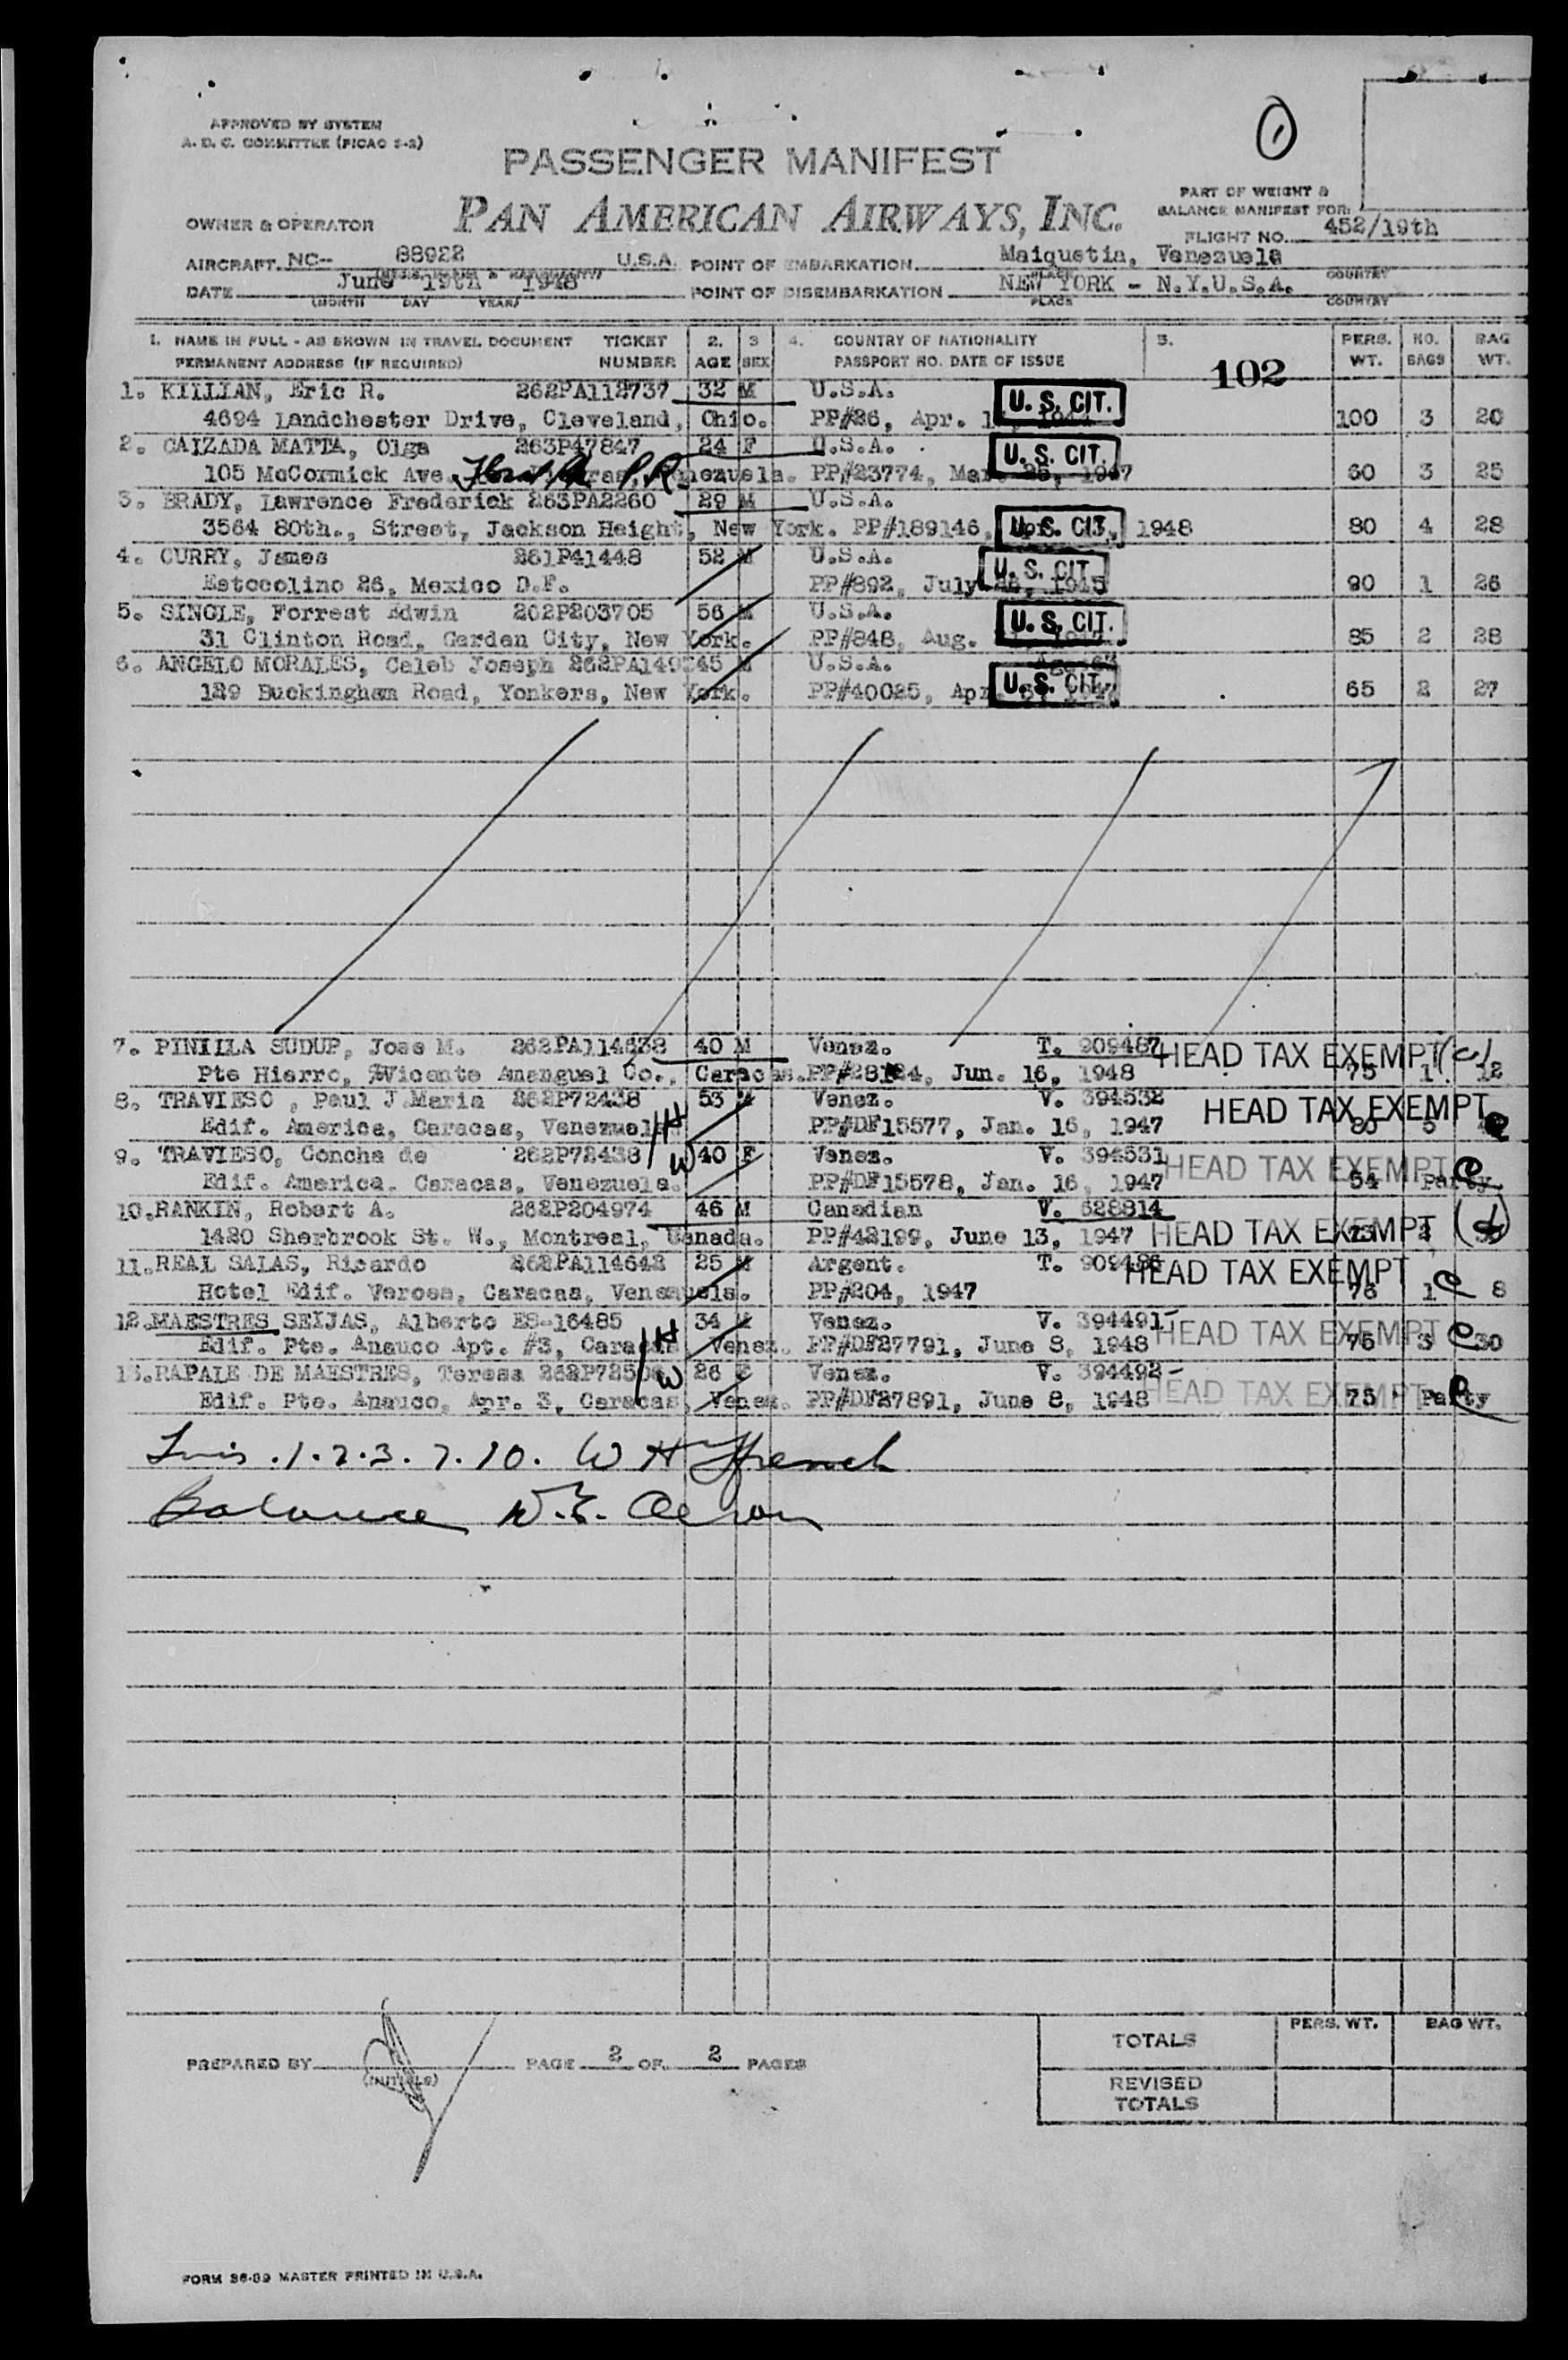 APPROVED BY SYSTEM
A. D. C. COMMITTEE (PICAO 2-2)
1
PASSENGER MANIFEST
PART OF WEIGHT &
BALANCE MANIFEST FOR:
OWNER & OPERATOR PAN AMERICAN AIRWAYS, INC.
FLIGHT NO. 452/19th
AIRCRAFT NC-- 88922 U.S.A. POINT OF EMBARKATION Maiquetia, Venezuela
PLACE COUNTRY
DATE June 19th 1948 POINT OF DISEMBARKATION NEW YORK - N.Y.U.S.A.
(MONTH DAY YEAR) PLACE COUNTRY
1. NAME IN FULL - AS SHOWN IN TRAVEL DOCUMENT TICKET 2. 3 4. COUNTRY OF NATIONALITY 5. PERS. NO. BAG
PERMANENT ADDRESS (IF REQUIRED) NUMBER AGE SEX PASSPORT NO. DATE OF ISSUE 102 WT. BAGS WT.
1. KILLIAN, Eric R. 262PA112737 32 M U.S.A. U.S. CIT.
4694 Landchester Drive, Cleveland, Ohio. PP#26, Apr. 100 3 20
2. CALZADA MATTA, Olga 263P47847 24 F U.S.A. U.S. CIT.
105 McCormick Ave. P.R. PP#23774, Mar. 25, 1947 60 3 25
3. BRADY, Lawrence Frederick 263PA2260 29 M U.S.A.
3564 80th., Street, Jackson Height, New York. PP#189146, U.S. CIT. 1948 80 4 28
4. CURRY, James 261P41448 52 M U.S.A. U.S. CIT
Estocolino 26, Mexico D.F. PP#892, July 1945 90 1 26
5. SINGLE, Forrest Edwin 262P203705 56 M U.S.A. U.S. CIT.
31 Clinton Road, Garden City, New York. PP#848, Aug. 85 2 28
6. ANGELO MORALES, Caleb Joseph 262PA149 45 M U.S.A.
129 Buckingham Road, Yonkers, New York. PP#40025, Apr U.S. CIT. 65 2 27
7. PINILLA SUDUP, Jose M. 262PA114638 40 M Venez. T. 909487 HEAD TAX EXEMPT (c)
Pte Hierro, Vicente Amenguel Co., Caracas. PP#28124, Jun. 16, 1948 75 1 12
8. TRAVIESO, Paul J.Maria 262P72438 53 M Venez. V. 394532 HEAD TAX EXEMPT
Edif. America, Caracas, Venezuela H PP#DF15577, Jan. 16, 1947 80 5
9. TRAVIESO, Concha de 262P72438 W 40 F Venez. V. 394531 HEAD TAX EXEMPT
Edif. America. Caracas, Venezuela. PP#DF15578, Jan. 16, 1947 54 Party
10. RANKIN, Robert A. 262P204974 46 M Canadian V. 628814
1420 Sherbrook St. W., Montreal, Canada. PP#42199, June 13, 1947 HEAD TAX EXEMPT
11. REAL SALAS, Ricardo 262PA114642 25 M Argent. T. 909486 HEAD TAX EXEMPT
Hotel Edif. Veroes, Caracas, Venezuela. PP#204, 1947 76 1 8
12. MAESTRES SEIJAS, Alberto ES-16485 34 M Venez. V. 394491 HEAD TAX EXEMPT
Edif. Pte. Anauco Apt. #3, Caracas H Venez. PP#DF27791, June 8, 1948 76 3 30
13. RAPALE DE MAESTRES, Teresa W 26 F Venez. V. 394492 HEAD TAX EXEMPT
Edif. Pte. Anauco, Apr. 3, Caracas, Venez. PP#DF27891, June 8, 1948 75 Party
1. 2. 3. 7. 10. W H Ffrench
Balance
PREPARED BY (INITIALS) PAGE 2 OF 2 PAGES
TOTALS PERS. WT. BAG WT.
REVISED
TOTALS
FORM 36-39 MASTER PRINTED IN U.S.A.